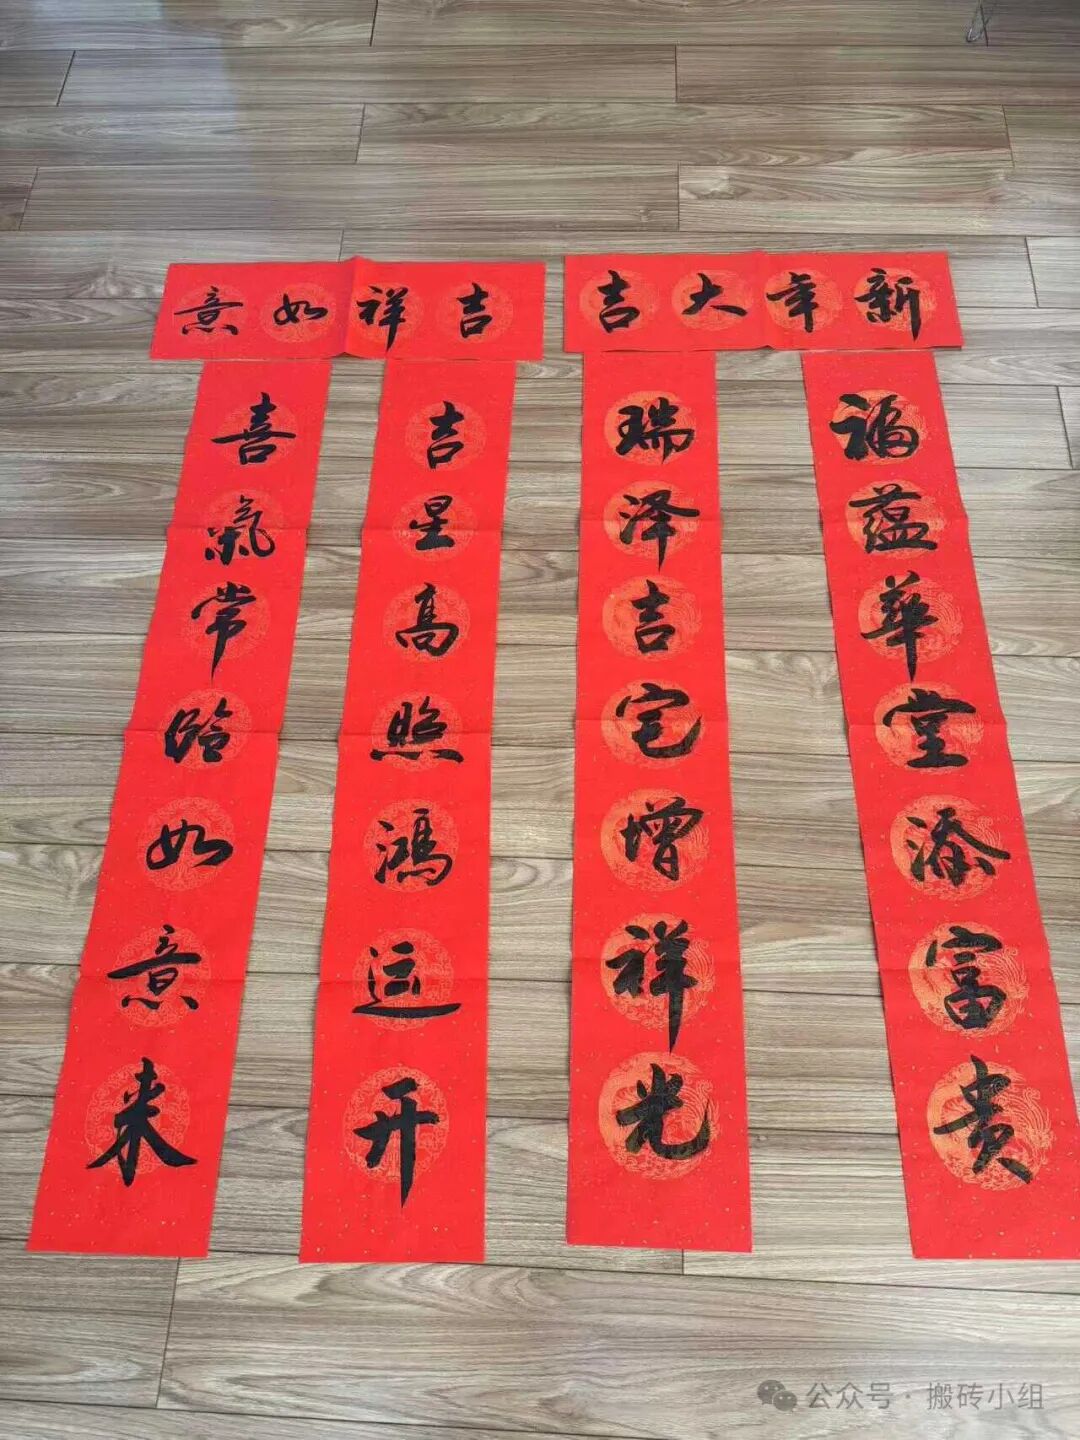 新年大吉
福蕴華堂添富贵
瑞泽吉宅增祥光
吉祥如意
吉星高照鸿运开
喜氣常臨如意来
公众号·搬砖小组